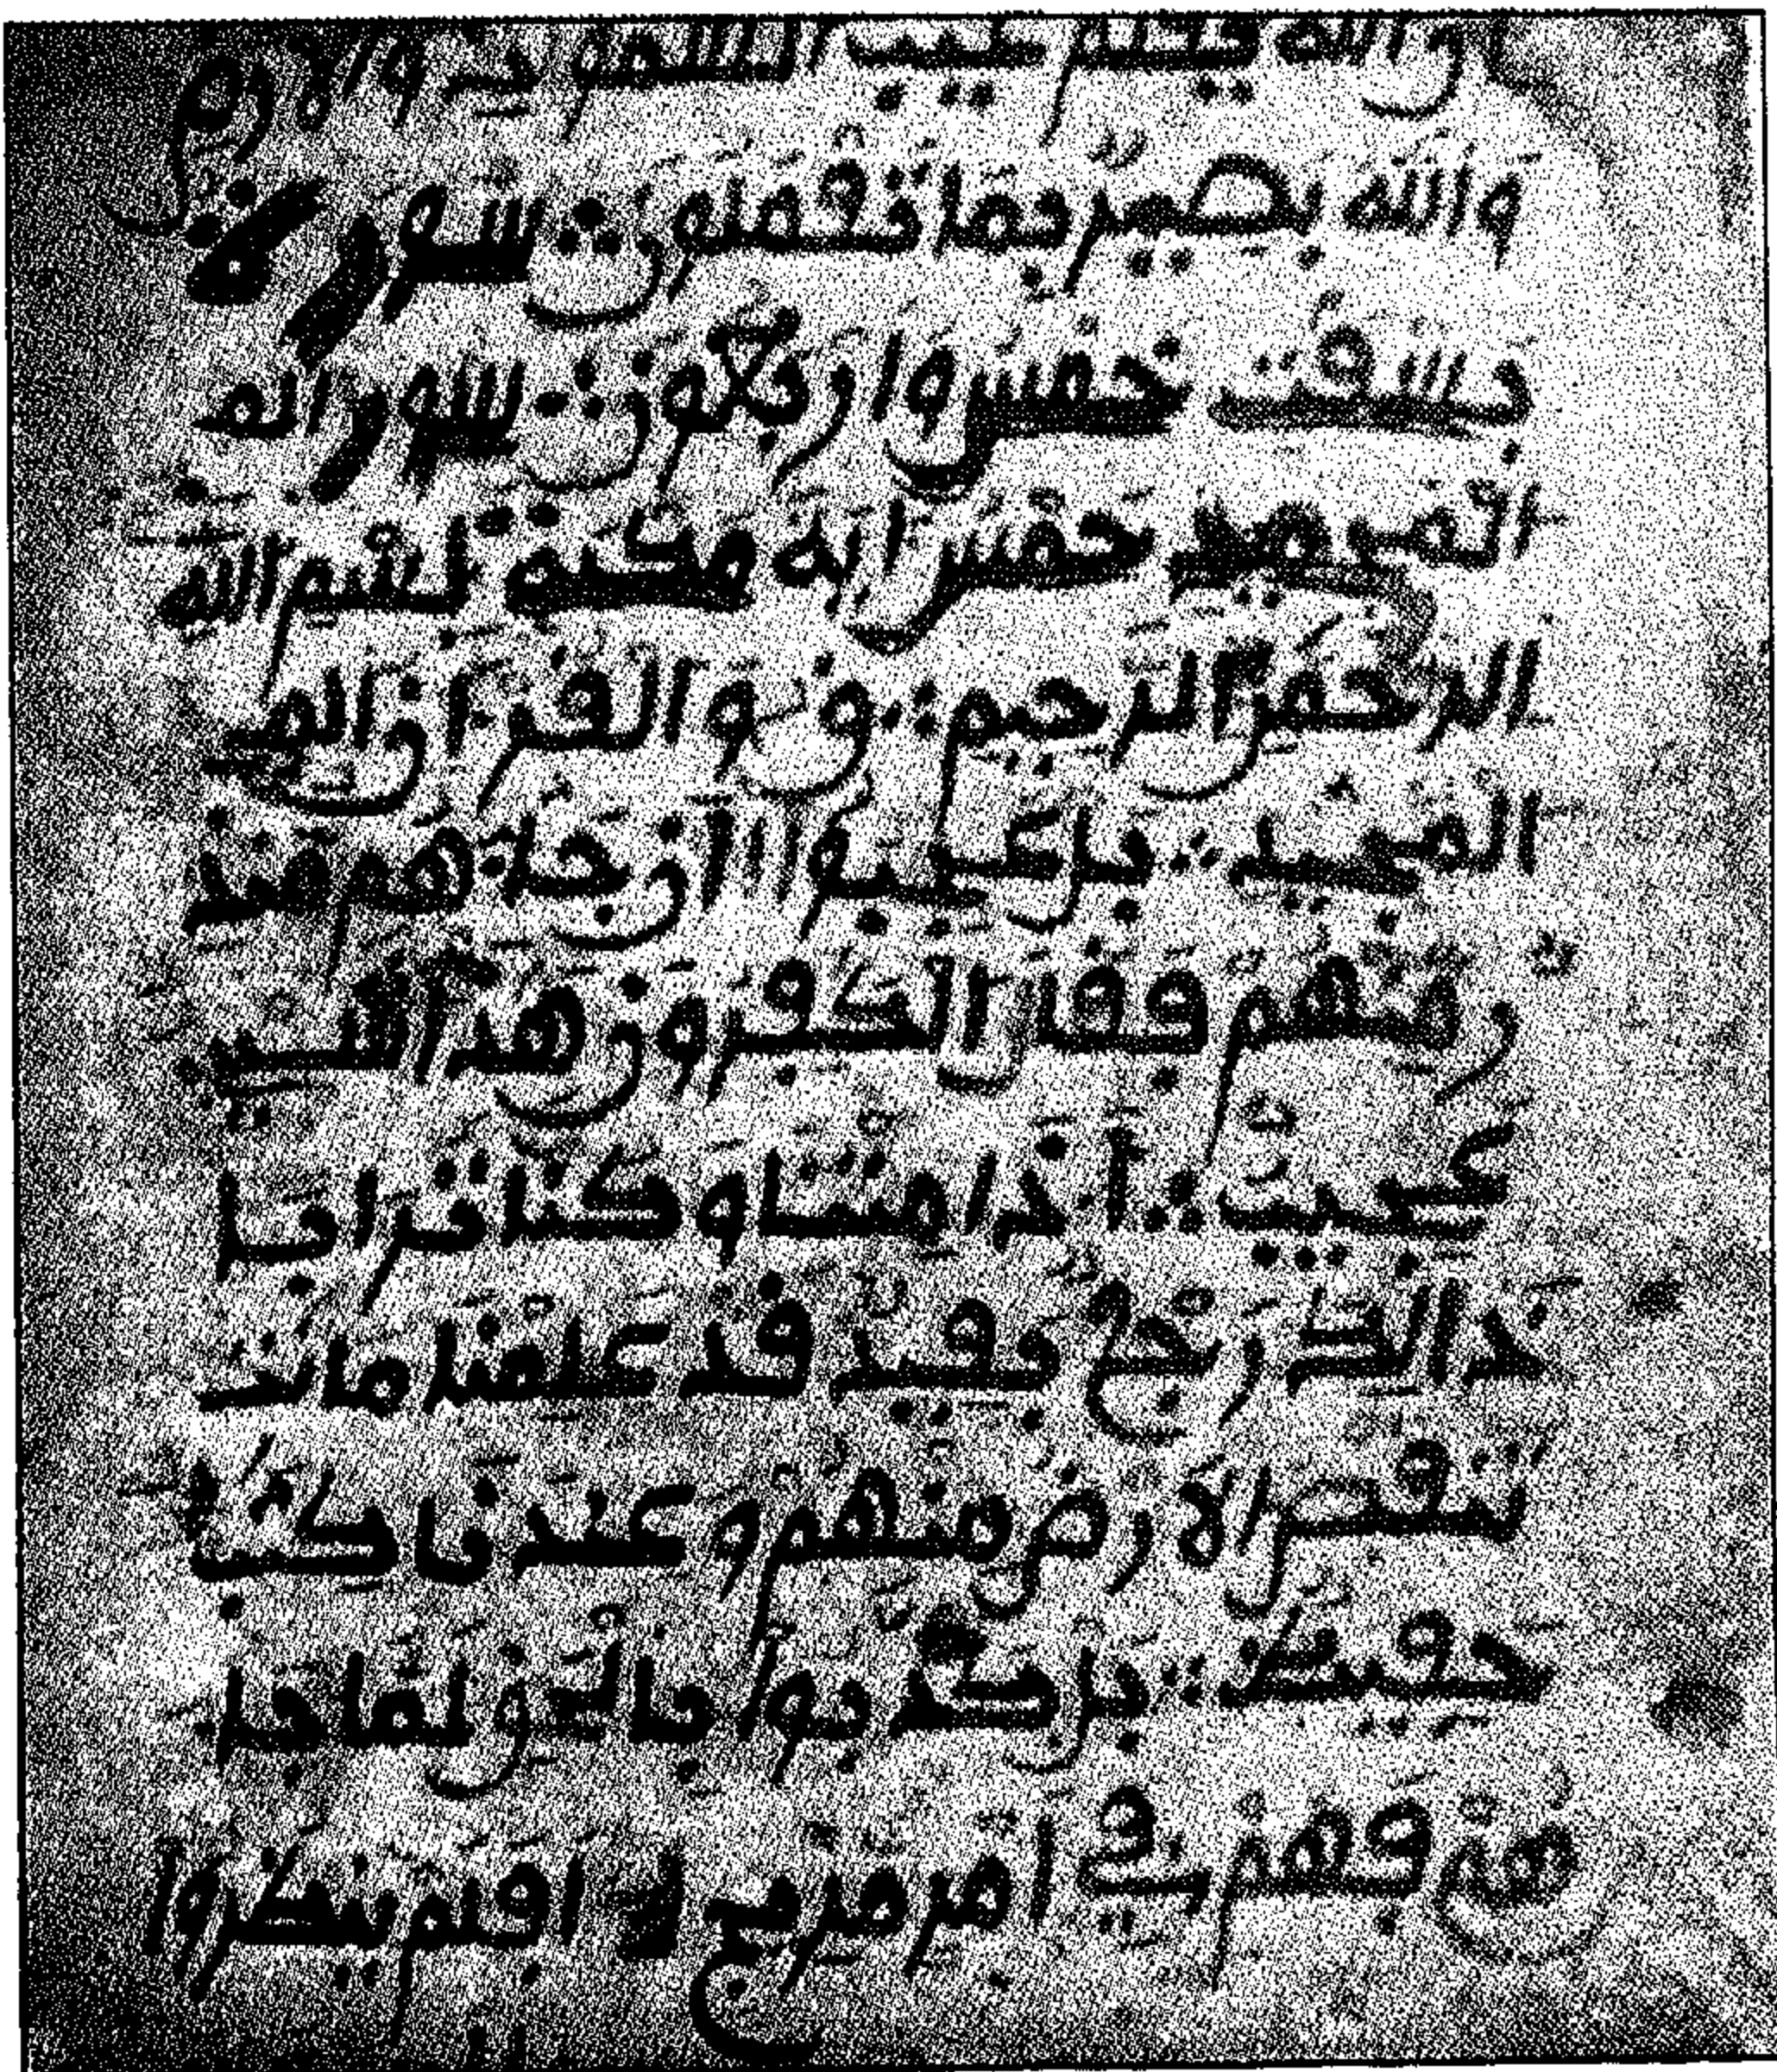 والله يعلم غيب السموت والارض
والله بصير بما تعملون سورة
بسقت خمس واربعون سورالم
المجيد خمس ايه مكية بسم الله
الرحمن الرحيم ق والقرءان الم
المجيد بل عجبوا ان جاءهم منذ
ر منهم فقال الكفرون هذا شيء
عجيب أ ذا متنا وكنا ترابا
ذالك رجع بعيد قد علمنا ما تن
تنقص الارض منهم وعندنا كتب
حفيظ بل كذبوا بالحق لما جا
هم فهم في امر مريج افلم ينظروا